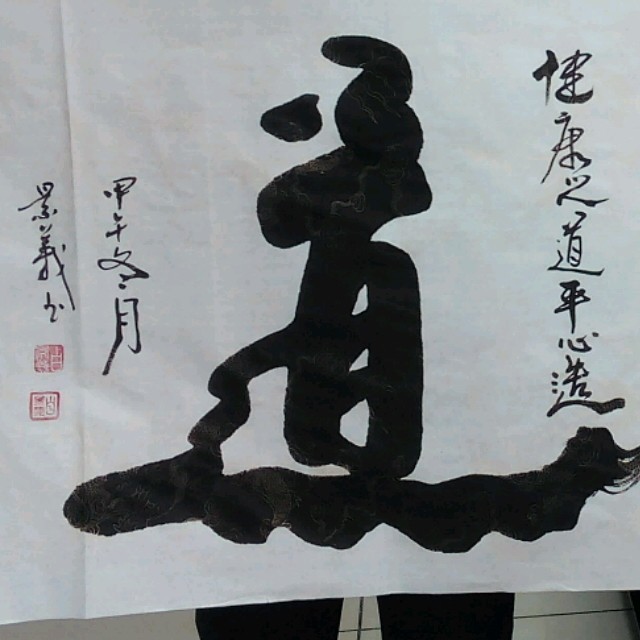 健康之道平心造
道
甲午冬月
景義书